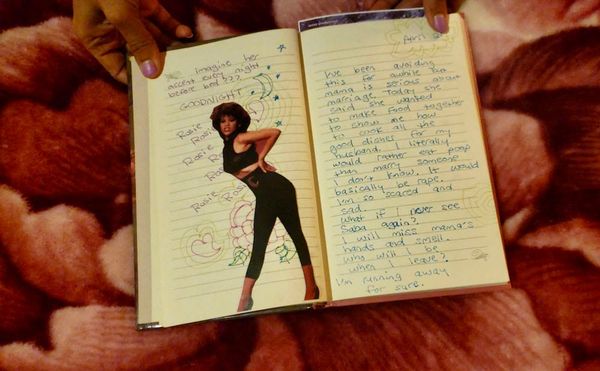 Imagine her
accent every night
before bed???
GOODNIGHT
Rosie
Rosie
Rosie
Rosie
Rosie
Rosie
April
I've been avoiding
this for awhile but
mama is serious about
marriage. Today she
said she wanted
to make food together
to show me how
to cook all the
good dishes for my
husband. I literally
would rather eat poop
than marry someone
I don't know. It would
basically be rape.
I'm so scared and
sad.
what if I never see
Saba again?
I will miss mama's
hands and smell.
who will I be
when I leave?
I'm running away
for sure.